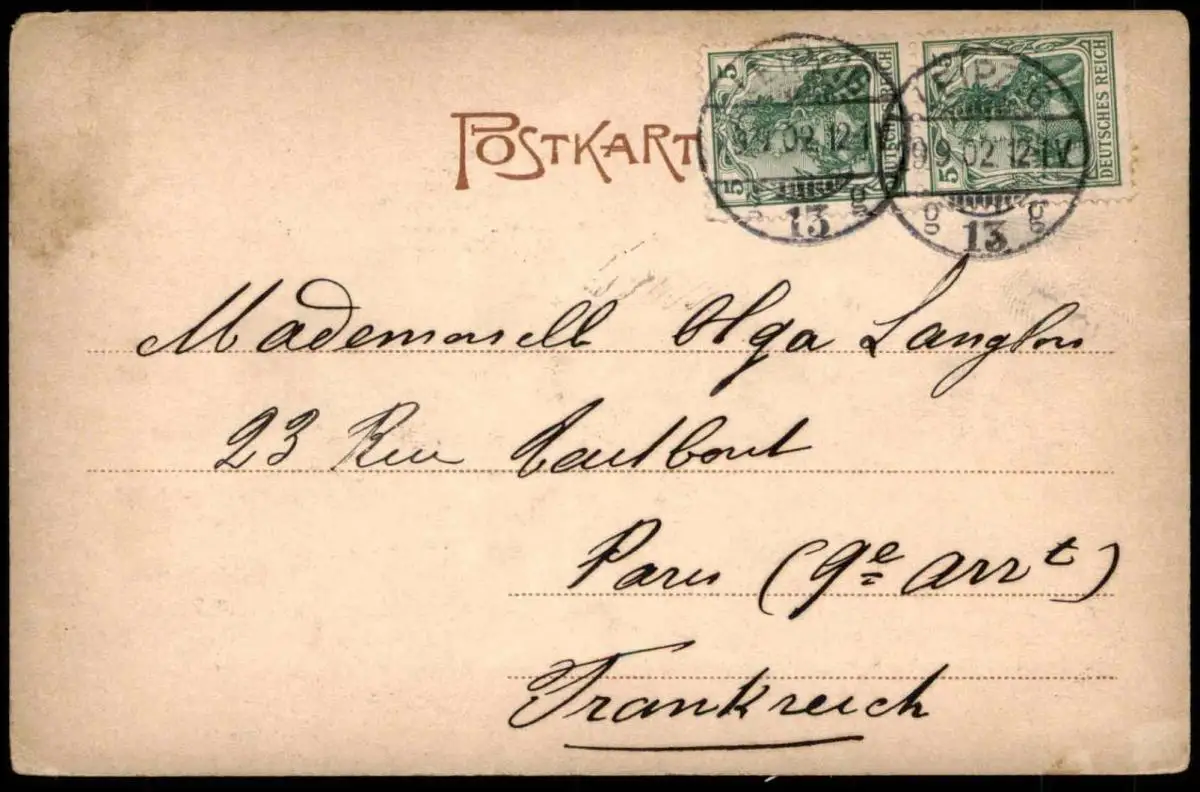 POSTKART
5 5 DEUTSCHES REICH
5 5 DEUTSCHES REICH
LEIPZIG
9.9.02.12-1
g
13
LEIPZIG
9.9.02.12-1V
g g
13
Mademoiselle Olga Langlois
23 Rue Taitbout
Paris (9e arrt)
Frankreich